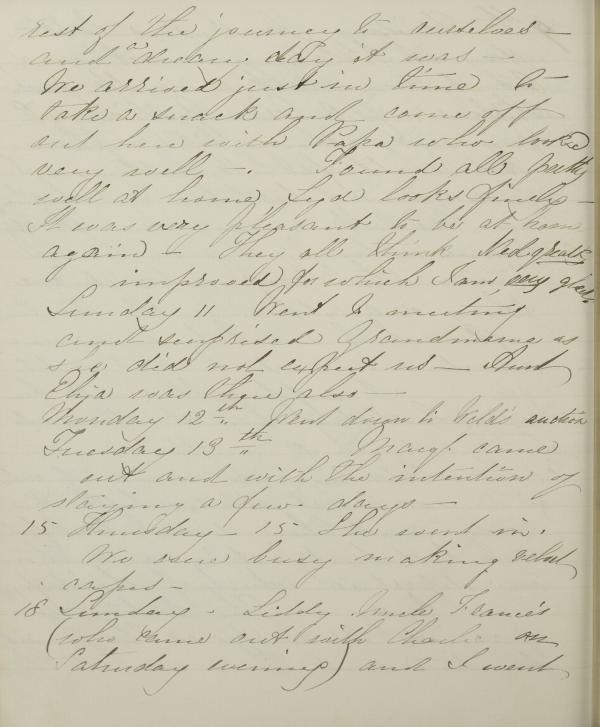 rest of the journey to ourselves —
and a dreary day it was —
We arrived just in time to
take a snack and come off
out here with Papa who looked
very well —. Found all pretty
well at home, Lyd looks finely —
It was very pleasant to be at home
again — They all think Ned greatly
improved, for which I am very glad
Sunday 11 Went to meeting
and surprised Grandmama as
she did not expect us — Aunt
Eliza was there also —
Monday 12th Went down to Weld's auction
Tuesday 13th Margt. came
out and with the intention of
staying a few days —
15 Thursday — 15 She went in.
We were busy making velvet
capes —
18 Sunday. Liddy, Uncle Francis
(who came out with Charlie on
Saturday evening) and I went